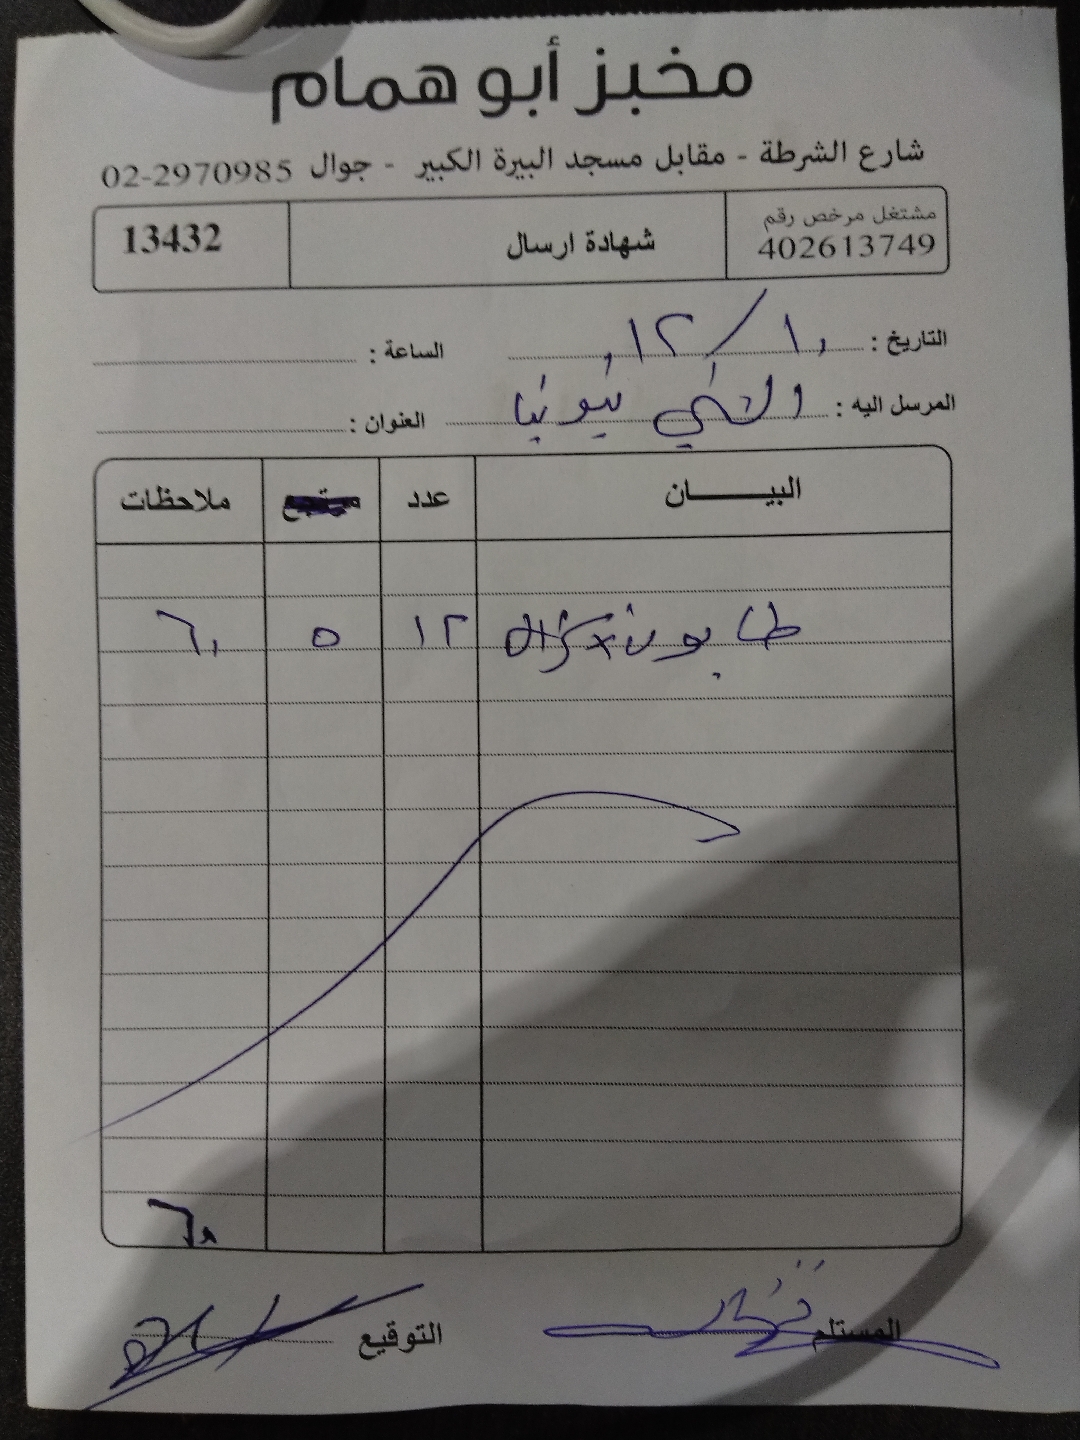 مخبز أبو همام
شارع الشرطة - مقابل مسجد البيرة الكبير - جوال 02-2970985
مشتغل مرخص رقم
402613749
شهادة ارسال
13432
التاريخ : ١٠ / ١٢
الساعة :
المرسل اليه :
العنوان :
البيـــــان عدد مرتجع ملاحظات
طابون ١٢ ٥ ٦٠
٦٠
المستلم
التوقيع